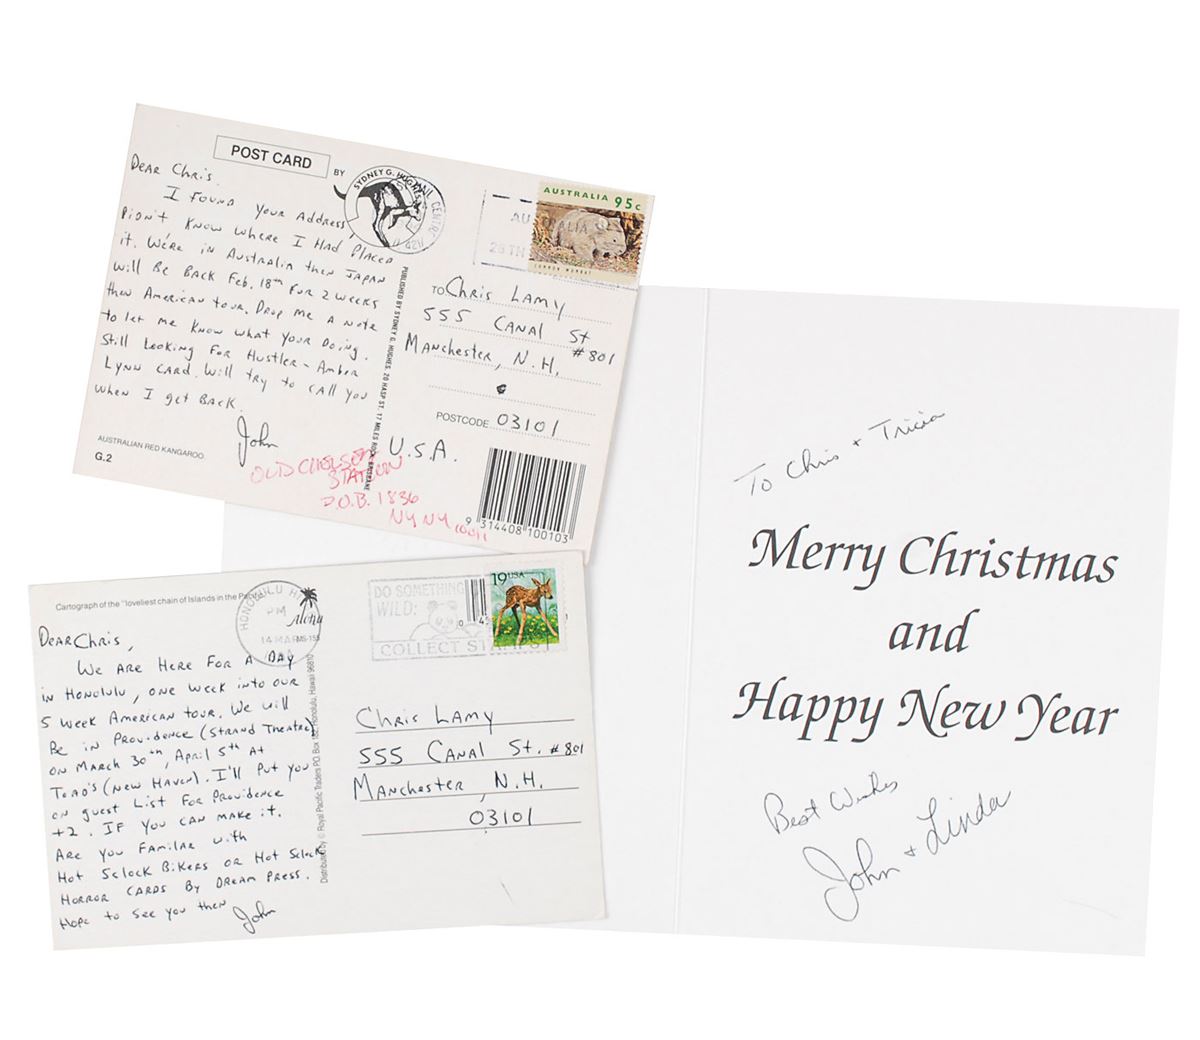 POST CARD
BY
SYDNEY G. HUGHES
AUSTRALIA 95c
COMMON WOMBAT
Dear Chris
I Found Your Address,
Didn't Know where I Had Placed
it. We're in Australia then Japan
will Be Back Feb. 18th For 2 weeks
then American tour. Drop me A note
to let me Know what Your Doing.
Still Looking For Hustler - Amber
Lynn Card. Will try to call you
when I get Back.
John
AUSTRALIAN RED KANGAROO
G.2
PUBLISHED BY SYDNEY G. HUGHES, 20 HASP ST. 17 MILES ROCK, BRISBANE
TO Chris Lamy
555 Canal St
Manchester, N.H. #801
POSTCODE 03101
U.S.A.
OLD CHELSEA
STATION
P.O.B. 1836
NY NY 10011
9 314408 100103
Cartograph of the "loveliest chain of Islands in the Pacific
HONOLULU HI
PM
14 MAR
Aloha
RMS-155
DO SOMETHING
WILD:
COLLECT STAMPS
19 USA
Dear Chris,
We are Here For A Day
in Honolulu, one week into our
5 week American tour. We will
Be in Providence (Strand Theatre)
on March 30th, April 5th At
Toad's (New Haven). I'll Put You
on guest List For Providence
+2. IF You can make it.
Are You Familar with
Hot Schlock Bikers or Hot Sclock
Horror Cards By Dream Press.
Hope to see You then
John
Distributed by © Royal Pacific Traders P.O. Box Honolulu, Hawaii 96810
Chris Lamy
555 Canal St. #801
Manchester, N.H.
03101
To Chris + Tricia
Merry Christmas
and
Happy New Year
Best Wishes
John + Linda